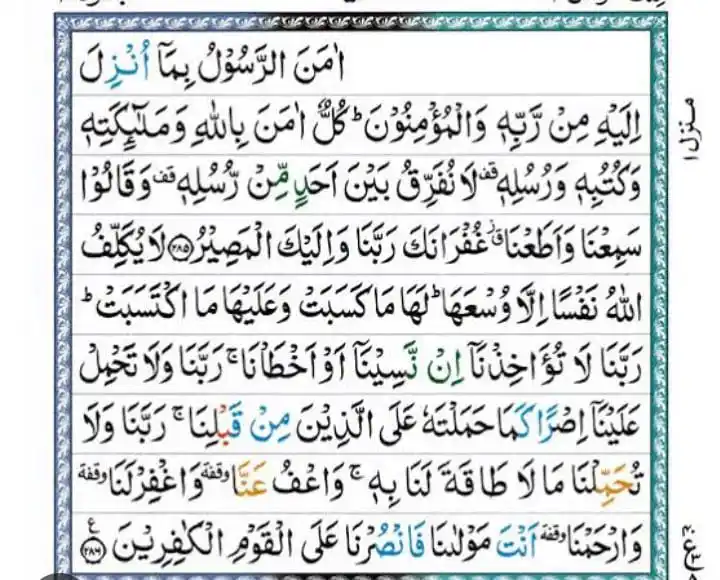 اٰمَنَ الرَّسُوْلُ بِمَاۤ اُنْزِلَ
اِلَيْهِ مِنْ رَّبِّهٖ وَالْمُؤْمِنُوْنَ ؕ كُلٌّ اٰمَنَ بِاللّٰهِ وَمَلٰٓئِكَتِهٖ
وَكُتُبِهٖ وَرُسُلِهٖ قف لَا نُفَرِّقُ بَيْنَ اَحَدٍ مِّنْ رُّسُلِهٖ قف وَقَالُوْا
سَمِعْنَا وَاَطَعْنَا ق٘ غُفْرَانَكَ رَبَّنَا وَاِلَيْكَ الْمَصِيْرُ ﴿۲۸۵﴾ لَا يُكَلِّفُ
اللّٰهُ نَفْسًا اِلَّا وُسْعَهَا ؕ لَهَا مَا كَسَبَتْ وَعَلَيْهَا مَا اكْتَسَبَتْ ؕ
رَبَّنَا لَا تُؤَاخِذْنَاۤ اِنْ نَّسِيْنَاۤ اَوْ اَخْطَاْنَا ۚ رَبَّنَا وَلَا تَحْمِلْ
عَلَيْنَاۤ اِصْرًا كَمَا حَمَلْتَهٗ عَلَى الَّذِيْنَ مِنْ قَبْلِنَا ۚ رَبَّنَا وَلَا
تُحَمِّلْنَا مَا لَا طَاقَةَ لَنَا بِهٖ ۚ وَاعْفُ عَنَّا وقفة وَاغْفِرْ لَنَا وقفة
وَارْحَمْنَا وقفة اَنْتَ مَوْلٰىنَا فَانْصُرْنَا عَلَى الْقَوْمِ الْكٰفِرِيْنَ ﴿۲۸۶﴾ ع
منزل ۱